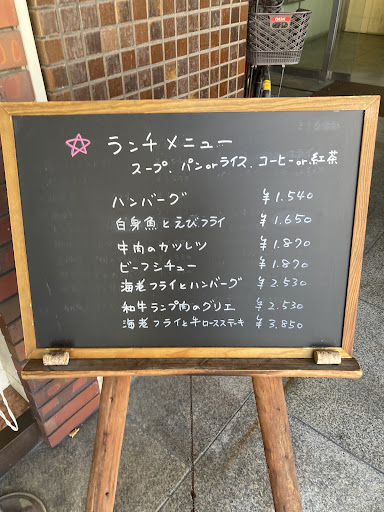 ランチメニュー
スープ、パンorライス、コーヒーor紅茶
ハンバーグ ¥1.540
白身魚とえびフライ ¥1.650
牛肉のカツレツ ¥1.870
ビーフシチュー ¥1.870
海老フライとハンバーグ ¥2.530
和牛ランプ肉のグリエ ¥2.530
海老フライと牛ロースステーキ ¥3.850